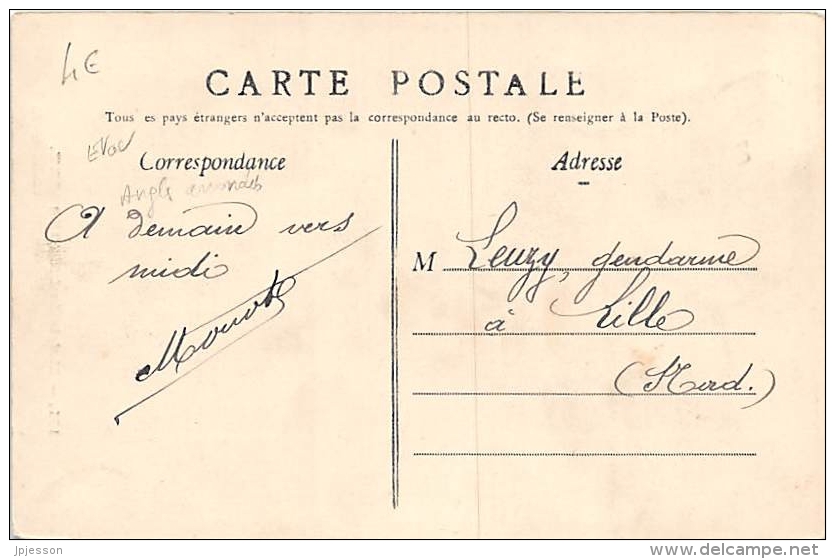 4€
CARTE POSTALE
Tous es pays étrangers n'acceptent pas la correspondance au recto. (Se renseigner à la Poste).
Correspondance
Adresse
Angles arrondis
A demain vers
midi
M Leuzy, gendarme
à Lille
(Nord.)
jpjesson
www.delcampe.net